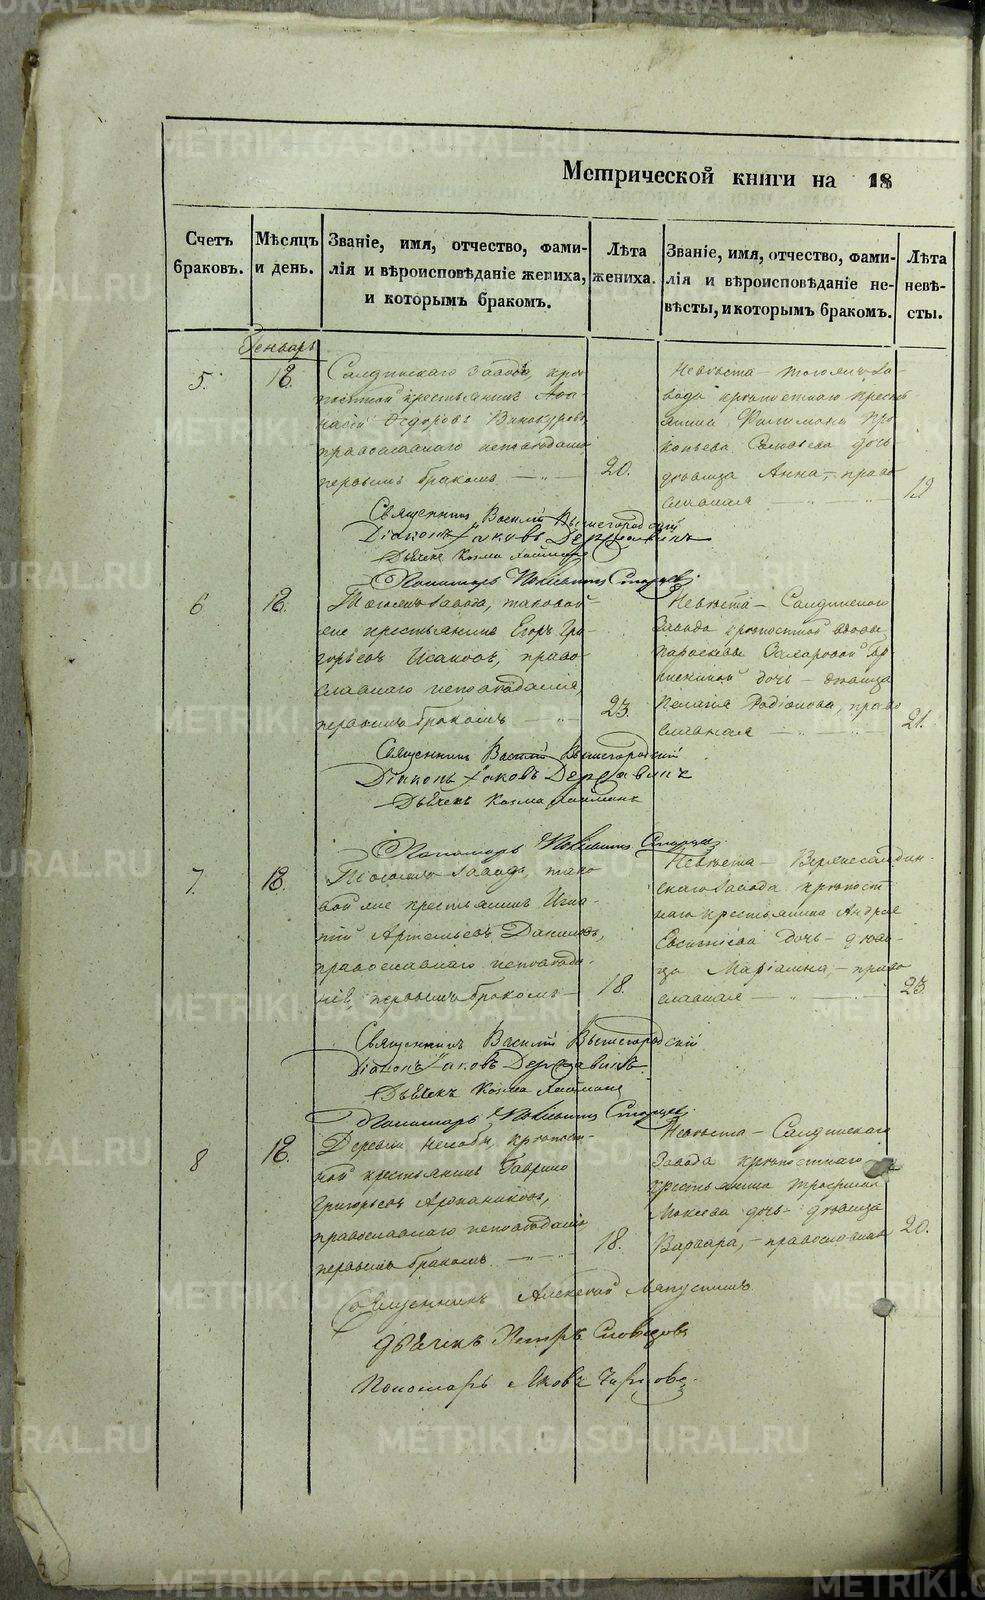 METRIKI.GASO-URAL.RU
Метрической книги на 18
Счетъ браковъ.
Мѣсяцъ и день.
Званіе, имя, отчество, фами-
лія и вѣроисповѣданіе жениха,
и которымъ бракомъ.
Лѣта жениха.
Званіе, имя, отчество, фами-
лія и вѣроисповѣданіе не-
вѣсты, и которымъ бракомъ.
Лѣта невѣ-
сты.
Генварь
5.
18.
Салдинскаго завода, крѣ-
постной крестьянинъ Аѳа-
насій Ѳедоровъ Винокуровъ,
православнаго исповѣданія
первымъ бракомъ
20.
Невѣста – тогожъ за-
вода крѣпостнаго кресть-
янина Филимона Про-
копьева дочь
дѣвица Анна, – право-
славная
19
Священникъ Василій Вышегородскій
Діаконъ Іаковъ Державинъ
Дьячекъ Козма
Пономарь Старцевъ.
6
18.
Тогожъ завода, таковой-
же крестьянинъ Егоръ Гри-
горьевъ Исаковъ, право-
славнаго исповѣданія,
первымъ бракомъ
23.
Невѣста – Салдинскаго
завода крѣпостной вдовы
Параскевы Захаровой
дочь – дѣвица
Пелагія Родіонова, право-
славная
21.
Священникъ Василій Вышегородскій
Діаконъ Іаковъ Державинъ
Дьячекъ Козма
Пономарь Старцевъ.
7
18.
Тогожъ завода, тако-
войже крестьянинъ Игна-
тій Артемьевъ Даниловъ,
православнаго исповѣда-
нія, первымъ бракомъ –
18.
Невѣста – Верхнесалдин-
скаго завода крѣпост-
наго крестьянина Андрея
Евсигнѣева дочь – дѣви-
ца Маріамна, – право-
славная
23.
Священникъ Василій Вышегородскій
Діаконъ Іаковъ Державинъ.
Дьячекъ Козма
Пономарь Старцевъ.
8
18.
Деревни Нелобы крѣпост-
ной крестьянинъ Гаврило
Григорьевъ
православнаго исповѣданія
первымъ бракомъ
18.
Невѣста – Салдинскаго
завода крѣпостнаго
крестьянина Трофима
Мокѣева дочь – дѣвица
Варвара, – православная
20.
Священникъ Алексѣй Ляпустинъ.
Дьячекъ Петръ Словцовъ
Пономарь Яковъ